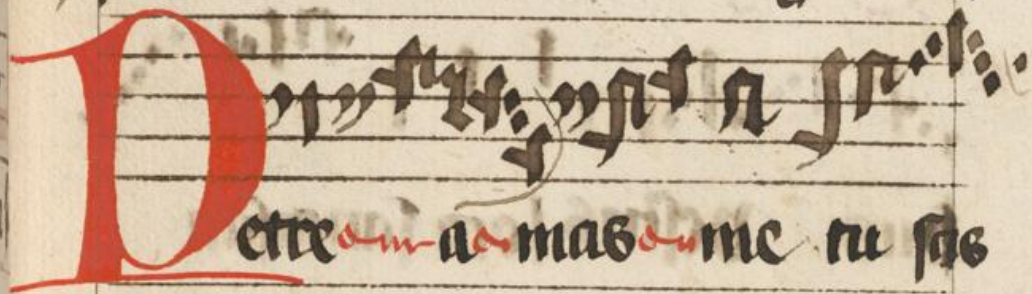 Petre amas me tu scis